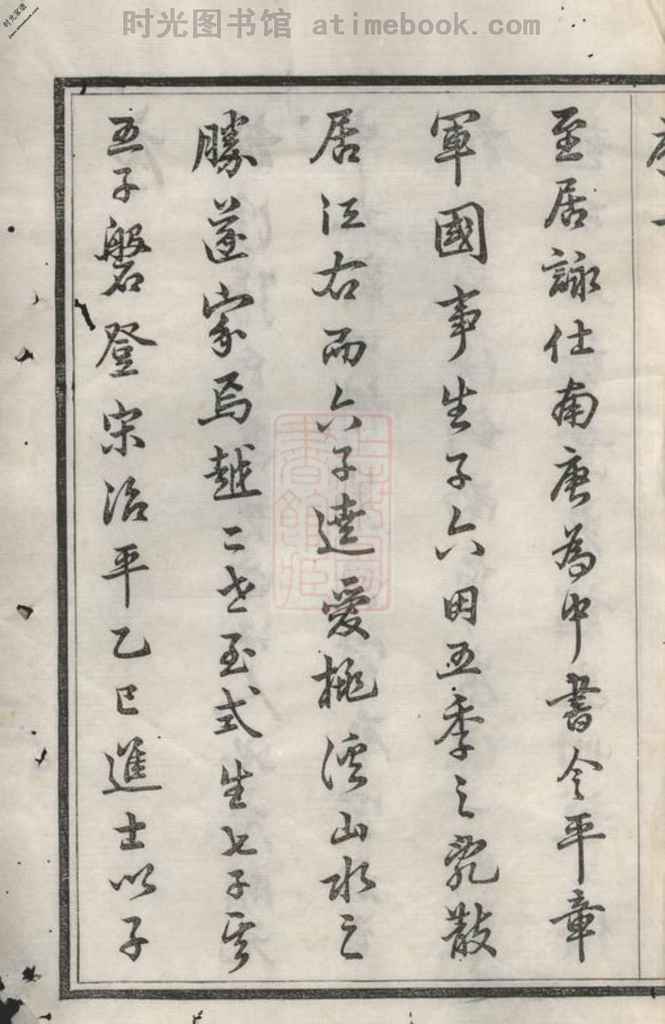 时光图书馆 - atimebook.com
至居詠仕南唐為中書令平章
軍國事生子六因五季之亂散
居江右而六子達愛桃溪山水之
勝遂家焉越二世至式生七子其
五子磐登宋治平乙巳進士以子